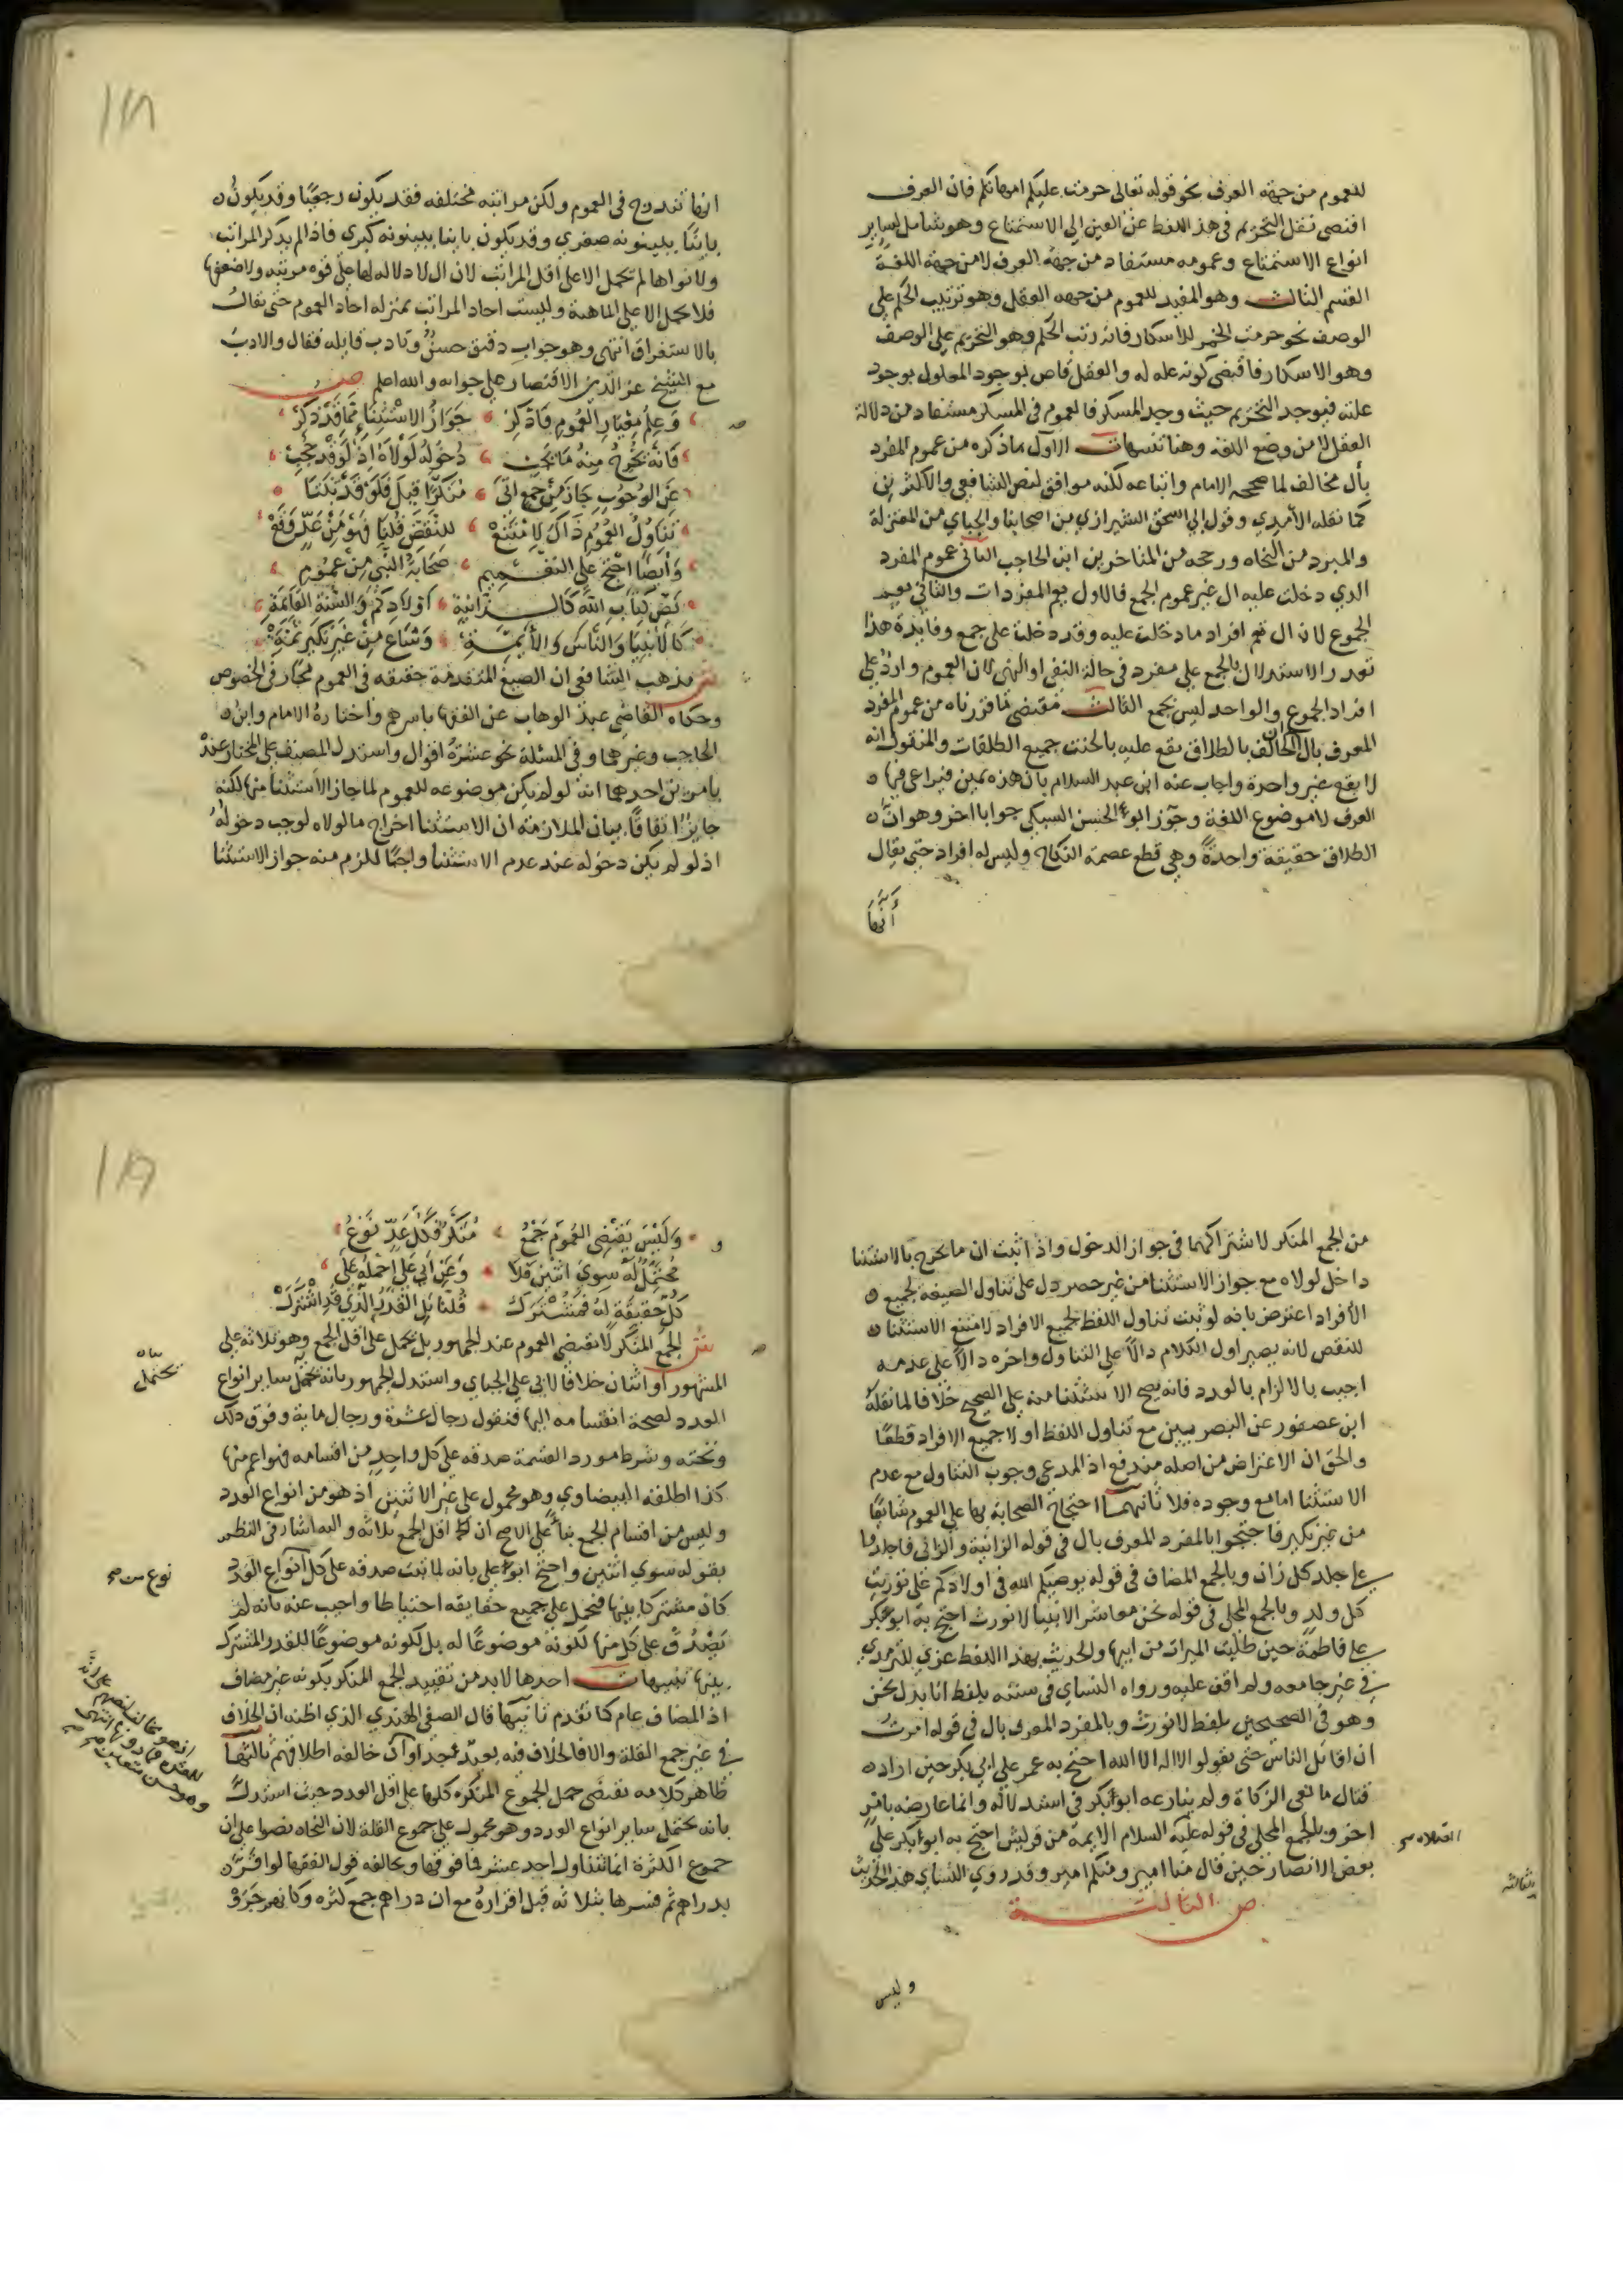 للعموم من جهة العرف نحو قوله تعالى حرمت عليكم امهاتكم فان العرف
اقتضى نقل التحريم في هذا اللفظ عن العين الي الاستمتاع وهو شامل لساير
انواع الاستمتاع وعمومه مستفاد من جهة العرف لا من جهة اللغة
القسم الثالث وهو المفيد للعموم من جهه العقل وهو ترتيب الحكم علي
الوصف نحو حرمت الخمر للاسكار فانه رتب الحكم وهو التحريم علي الوصف
وهو الاسكار فاقتضى كونه عله له والعقل قاض بوجود المعلول بوجود
علته فيوجد التحريم حيث وجد المسكر فالعموم في المسكر مستفاد من دلالة
العقل لا من وضع اللغة وهنا تنبيهات الاول ماذكره من عموم المفرد
بأل مخالف لما صححه الامام واتباعه لكنه موافق لنص الشافعي والاكثرين
كما نقله الآمدي وقول ابي اسحق الشيرازي من اصحابنا والجباي من المعتزلة
والمبرد من النحاه ورجحه من المتاخرين ابن الحاجب الثاني عموم المفرد
الذي دخلت عليه ال غير عموم الجمع فالاول يعم المفردات والثاني يعم
الجموع لان ال تعم افراد ما دخلت عليه وقد دخلت على جمع وفايدة هذا
تعذر الاستدلال بالجمع على مفرد في حالة النفي او النهي لان العموم وارد علي
افراد الجموع والواحد ليس بجمع الثالث مقتضى ما قررناه من عموم المفرد
المعرف بال ان الحالف بالطلاق يقع عليه بالحنث جميع الطلقات والمنقول انه
لا يقع غير واحدة واجاب عنه ابن عبد السلام بان هذه يمين فيراعى فيها
العرف لا موضوع اللغة وجوز ابو الحسن السبكي جوابا اخر وهو ان
الطلاق حقيقة واحدة وهي قطع عصمة النكاح وليس له افراد حتى يقال
أنها
١١٨
انها تندرج في العموم ولكن مراتبه مختلفه فقد يكون رجعيا وقد يكون
باينا بينونه صغري وقد يكون باينا بينونه كبري فاذا لم يذكر المراتب
ولا نواها لم تحمل الا على اقل المراتب لان ال لا دلاله لها على قوه مرتبه ولا ضعفها
فلا يحمل الا علي الماهية وليست احاد المراتب بمنزله احاد العموم حتى يقال
بالاستغراق انتهى وهو جواب دقيق حسن وتادب قايله فقال والادب
مع الشيخ عز الدين الاقتصار علي جوابه والله اعلم ص
وعلم معيار العموم فادكر جواز الاستثناء مما قد ذكر
فانه يخرج منه ما يجب دخوله لولاه اذ لو قد حجب
عن الوجوب جاز من جمع اتى منكرا قيل فلو قد ثبتا
تناول العموم ذاك لامتنع للنقض قلنا فهو من عد وقع
وأيضا احتج على التعميم صحابة النبي من عموم
نص كتاب الله كالزانية اولادكم والسنة القايمة
كالانبيا والناس والأيمة وشاع من غير نكير ثمة
ش مذهب الشافعي ان الصيغ المتقدمة حقيقه في العموم مجاز في الخصوص
وحكاه القاضي عبد الوهاب عن الفقها باسرهم واختاره الامام وابن
الحاجب وغيرهما وفي المسئلة نحو عشرة اقوال واستدل المصنف على المختار عنده
بامرين احدهما انه لو لم يكن موضوعه للعموم لما جاز الاستثنا منها لكنه
جايز اتفاقا بيان الملازمه ان الاستثنا اخراج ما لولاه لوجب دخوله
اذ لو لم يكن دخوله عند عدم الاستثنا واجبا للزم منه جواز الاستثنا
من الجمع المنكر لاشتراكهما في جواز الدخول واذا ثبت ان ما يخرج بالاستثنا
داخل لولاه مع جواز الاستثنا من غير حصر دل على تناول الصيغة لجميع
الأفراد اعترض بانه لو ثبت تناول اللفظ لجميع الافراد لامتنع الاستثنا
للنقض لانه يصير اول الكلام دالا علي التناول واخره دالا على عدمه
اجيب بالالزام بالعدد فانه يصح الاستثنا منه علي الصحيح خلافا لما نقله
ابن عصفور عن البصريين مع تناول اللفظ اولا جميع الافراد قطعا
والحق ان الاعتراض من اصله مندفع اذ المدعى وجوب التناول مع عدم
الاستثنا اما مع وجوده فلا ثانيهما احتجاج الصحابة بها على العموم شايعا
من غير نكير فاحتجوا بالمفرد المعرف بال في قوله الزانية والزاني فاجلدوا
على جلد كل زان وبالجمع المضاف في قوله يوصيكم الله في اولادكم على توريث
كل ولد وبالجمع المحلى في قوله نحن معاشر الانبيا لا نورث احتج به ابو بكر
علي فاطمة حين طلبت الميراث من ابيها والحديث بهذا اللفظ عزي للترمذي
في غير جامعه ولم اقف عليه ورواه النساي في سننه بلفظ انا بدل نحن
وهو في الصحيحين بلفظ لا نورث وبالمفرد المعرف بال في قوله امرت
ان اقاتل الناس حتى يقولوا لا اله الا الله احتج به عمر على ابي بكر حين اراده
قتال مانعي الزكاة ولم ينازعه ابو بكر في استدلاله وانما عارضه بامر
اخر وبالجمع المحلى في قوله عليه السلام الايمة من قريش احتج به ابو بكر على
بعض الانصار حين قال منا امير ومنكم امير وقد روي النساي هذا الحديث
ص الثالثة
وليس
١١٩
وليس يقتضي العموم جمع منكر فكل عد نوع
محتمل له سوي اثنين فلا وعن أبي علي احمله على
كل حقيقة له فمشترك قلنا بل القدر الذي قد اشترك
ش الجمع المنكر لا يقتضي العموم عند الجمهور بل يحمل على اقل الجمع وهو ثلاثه علي
المشهور او اثنان خلافا لابي علي الجباي واستدل الجمهور بانه يحتمل ساير انواع
العدد لصحة انقسامه اليها فنقول رجال عشرة ورجال ماية وفوق ذلك
وتحته وشرط مورد القسمة صدقه على كل واحد من اقسامه فهو اعم منها
كذا اطلقه البيضاوي وهو محمول علي غير الاثنين اذ هو من انواع العدد
وليس من اقسام الجمع بنا على الاصح ان اقل الجمع ثلاثه واليه اشار في النظم
بقوله سوي اثنين واحتج ابو علي بانه لما ثبت صدقه على كل انواع العدد
كان مشتركا بينها فيحمل علي جميع حقايقه احتياطا واجيب عنه بانه لم
يصدق على كل منها لكونه موضوعا له بل لكونه موضوعا للقدر المشترك
بينها تنبيهات احدها لا بد من تقييد الجمع المنكر بكونه غير مضاف
اذ المضاف عام كما تقدم ثانيها قال الصفي الهندي الذي اظنه ان الخلاف
في غير جمع القلة والا فالخلاف فيه بعيد جدا وان خالفه اطلاقهم ثالثها
ظاهر كلامه يقتضى حمل الجموع المنكره كلها على اقل العدد حيث استدل
بانه يحتمل ساير انواع العدد وهو محمول علي جموع القلة لان النحاه نصوا على ان
جموع الكثرة انما تتناول احد عشر فما فوقها ويخالفه قول الفقها لو اقر
بدراهم ثم فسرها بثلاثه قبل اقراره مع ان دراهم جمع كثره وكانهم جروا
يحتمل
نوع